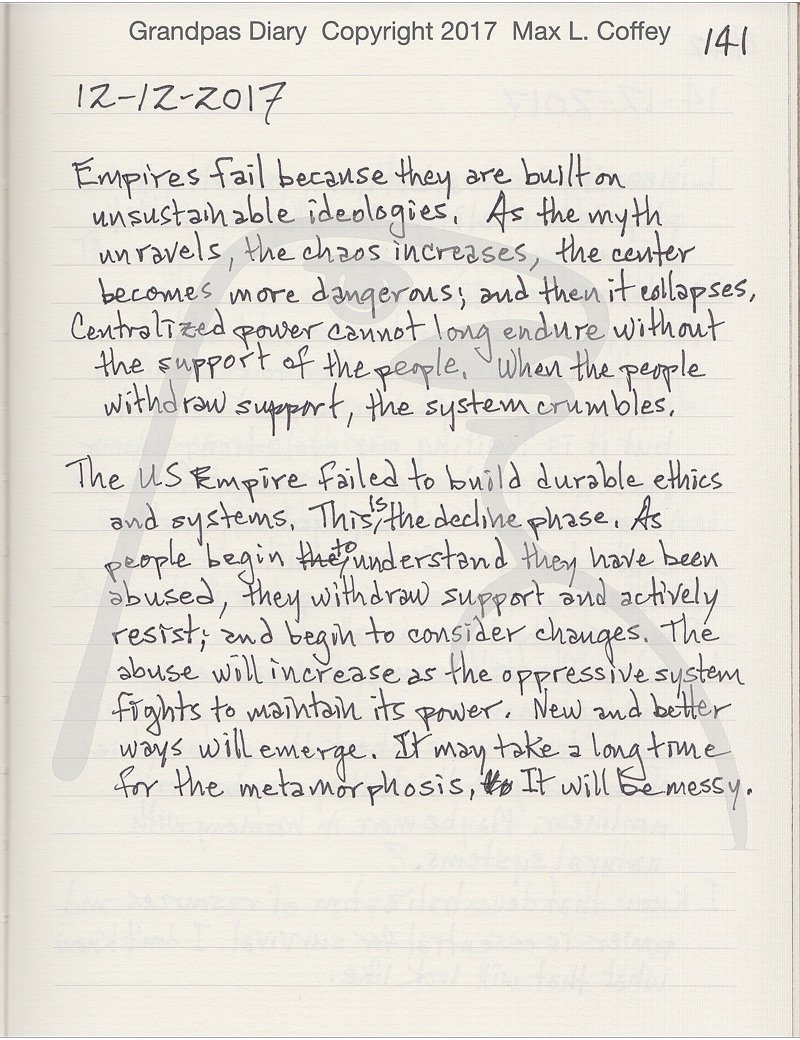 Grandpas Diary Copyright 2017 Max L. Coffey
141
12-12-2017
Empires fail because they are built on
unsustainable ideologies. As the myth
unravels, the chaos increases, the center
becomes more dangerous; and then it collapses,
Centralized power cannot long endure without
the support of the people. When the people
withdraw support, the system crumbles.
The US Empire failed to build durable ethics
and systems. This is the decline phase. As
people begin the to understand they have been
abused, they withdraw support and actively
resist; and begin to consider changes. The
abuse will increase as the oppressive system
fights to maintain its power. New and better
ways will emerge. It may take a long time
for the metamorphosis, It will be messy.